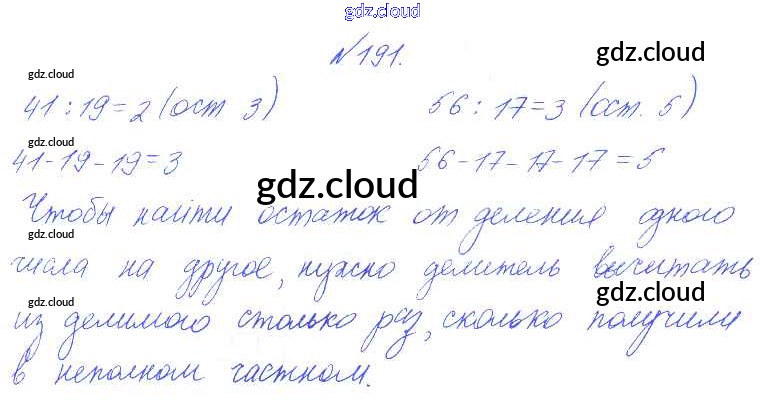 gdz.cloud
№191.
gdz.cloud
gdz.cloud
41 : 19 = 2 (ост 3) 56 : 17 = 3 (ост. 5)
gdz.cloud
41 - 19 - 19 = 3 56 - 17 - 17 - 17 = 5
gdz.cloud
Чтобы найти остаток от деления одного
gdz.cloud
числа на другое, нужно делитель вычитать
gdz.cloud
gdz.cloud
из делимого столько раз, сколько получили
gdz.cloud
в неполном частном.